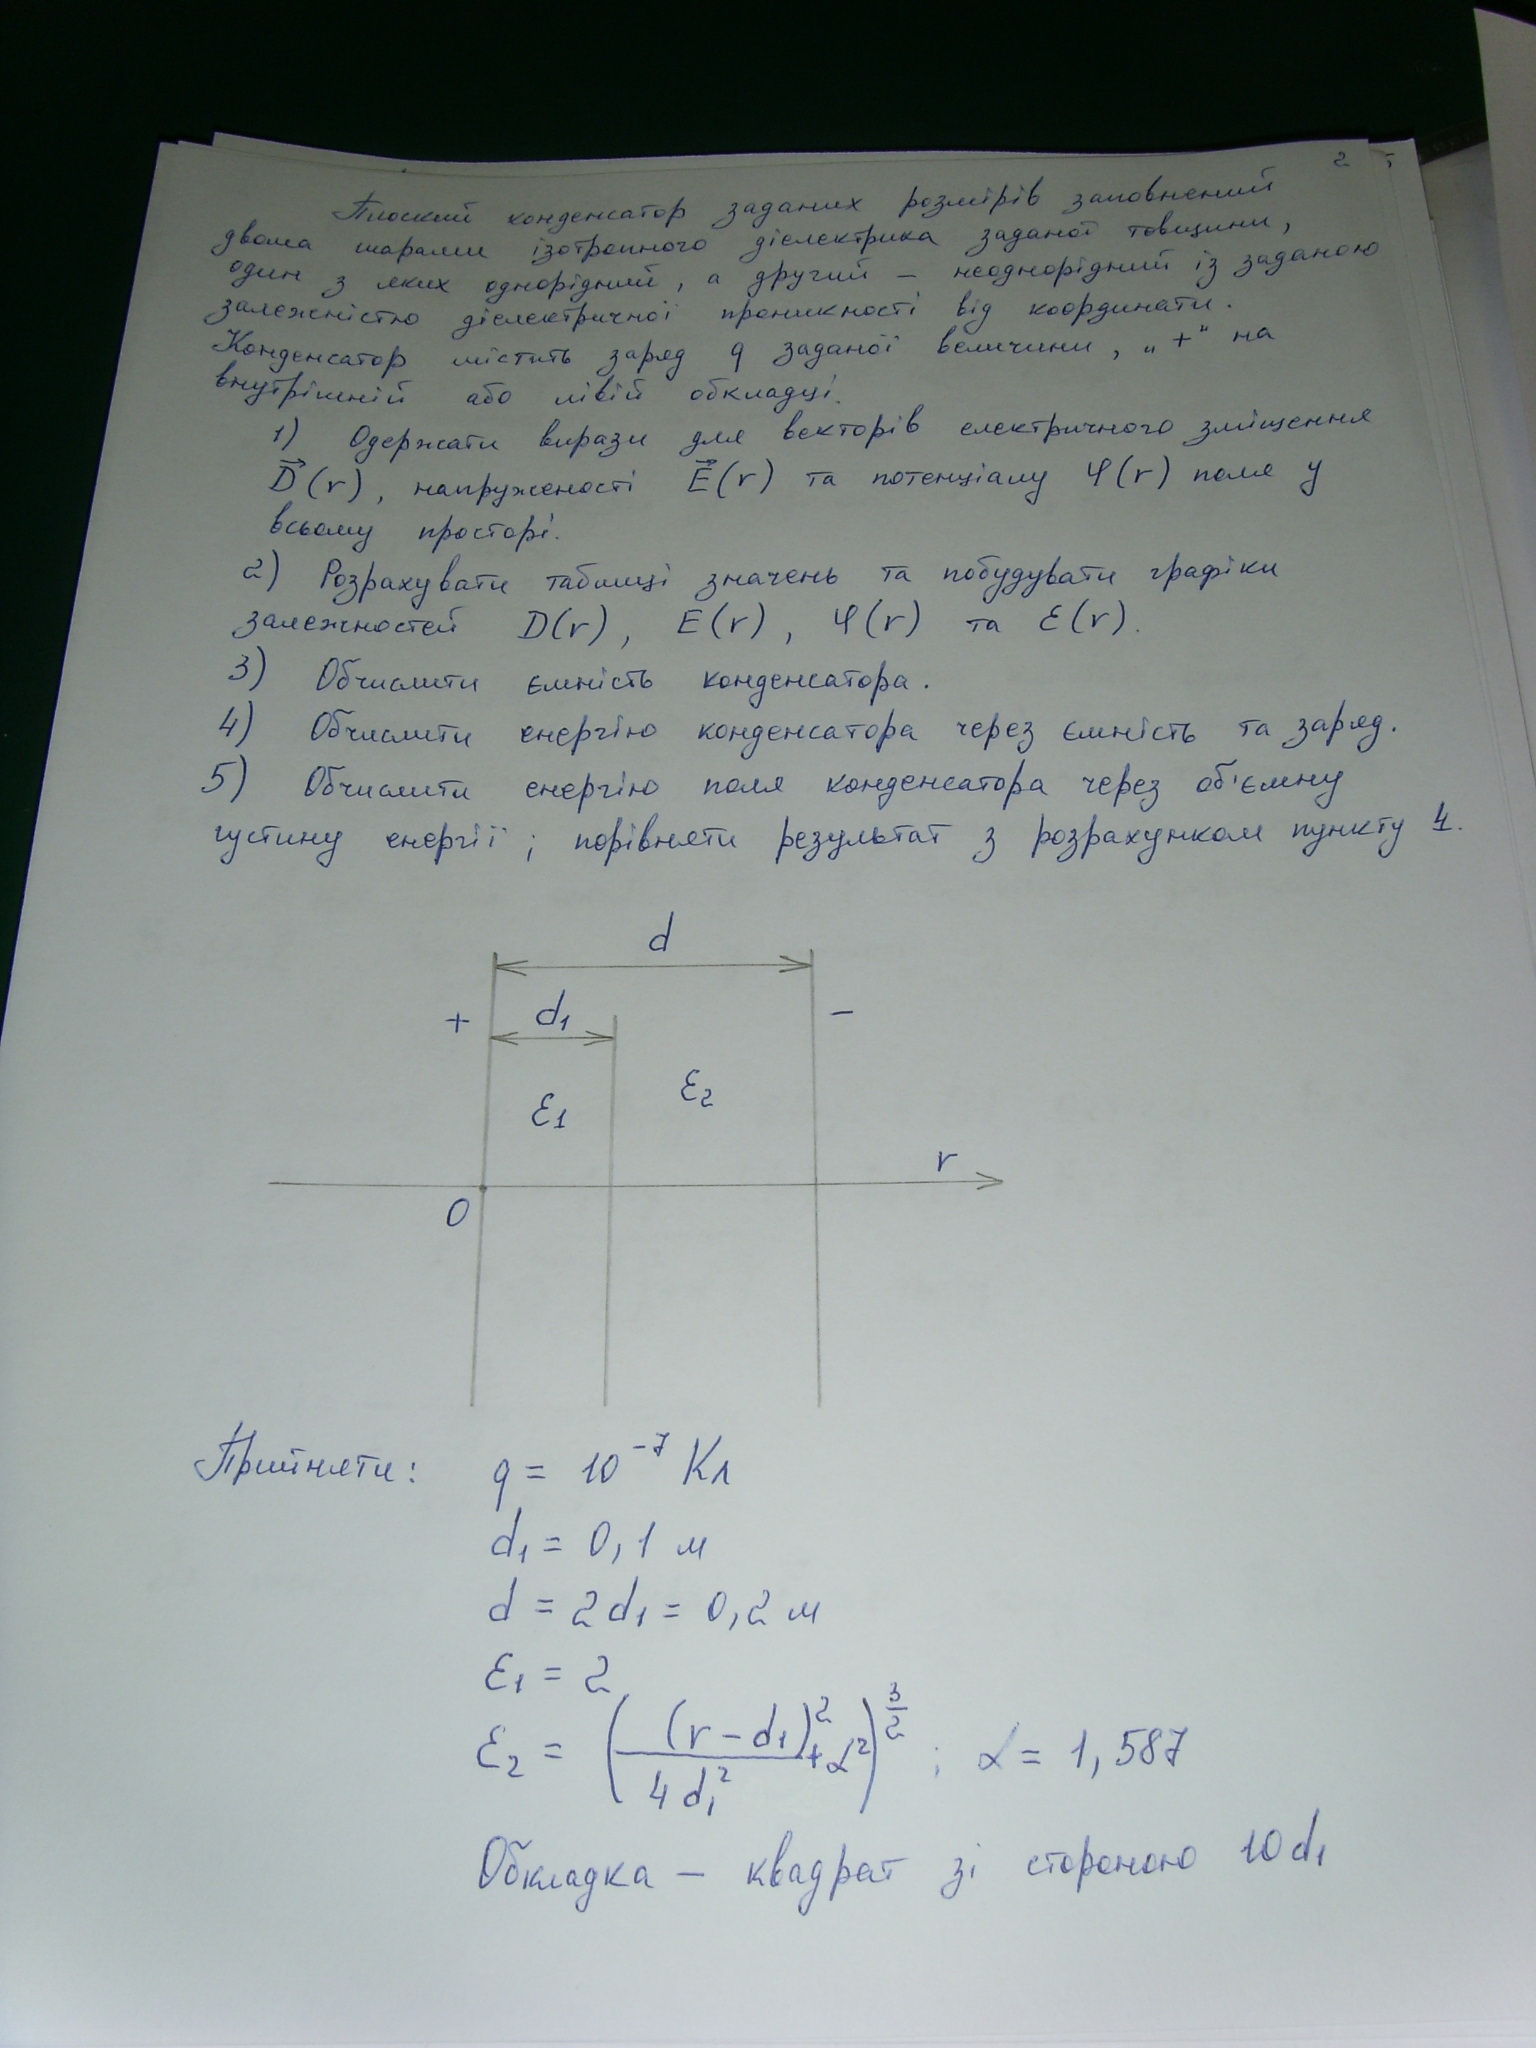 2
Плоский конденсатор заданих розмірів заповнений
двома шарами ізотропного діелектрика заданої товщини,
один з яких однорідний, а другий – неоднорідний із заданою
залежністю діелектричної проникності від координати.
Конденсатор містить заряд q заданої величини, „+" на
внутрішній або лівій обкладці.
1) Одержати вирази для векторів електричного зміщення
D⃗(r), напруженості E⃗(r) та потенціалу φ(r) поля у
всьому просторі.
2) Розрахувати таблиці значень та побудувати графіки
залежностей D(r), E(r), φ(r) та ε(r).
3) Обчислити ємність конденсатора.
4) Обчислити енергію конденсатора через ємність та заряд.
5) Обчислити енергію поля конденсатора через об'ємну
густину енергії; порівняти результат з розрахунком пункту 4.
d
+ d₁ –
ε₁ ε₂
r
0
Прийняти: q = 10⁻⁷ Кл
d₁ = 0,1 м
d = 2d₁ = 0,2 м
ε₁ = 2
ε₂ = ((r – d₁)²/4d₁² + α²)^(3/2) ; α = 1,587
Обкладка – квадрат зі стороною 10d₁